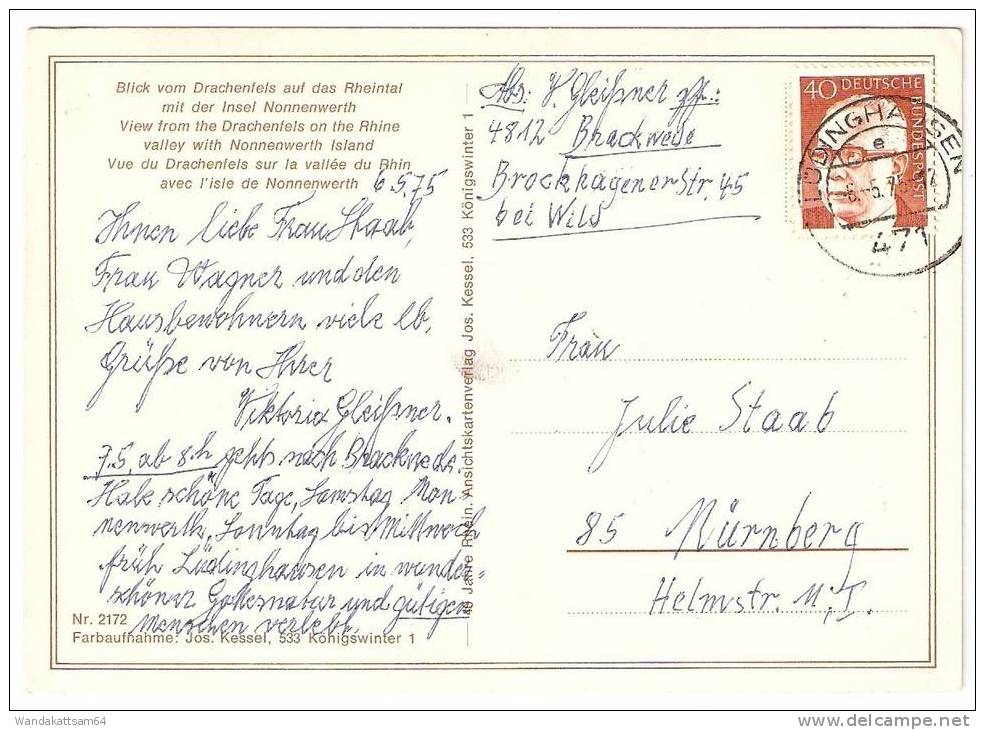 Blick vom Drachenfels auf das Rheintal
mit der Insel Nonnenwerth
View from the Drachenfels on the Rhine
valley with Nonnenwerth Island
Vue du Drachenfels sur la vallée du Rhin
avec l'isle de Nonnenwerth
6.5.75
Ihnen liebe Frau Staab,
Frau Wagner und den
Hausbewohnern viele lb.
Grüße von Ihrer
Viktoria Gleißner.
7.5. ab 8h gehts nach Brackwede.
Habe schöne Tage, Samstag Non-
nenwerth, Sonntag bis Mittwoch
früh Lüdinghausen in wunder-
schöner Gottesnatur und gütigen
Menschen verlebt.
Nr. 2172
Farbaufnahme: Jos. Kessel, 533 Königswinter 1
40 Jahre Rhein. Ansichtskartenverlag Jos. Kessel, 533 Königswinter 1
Abs: V. Gleißner
4812 Brackwede
Brockhagenerstr. 45
bei Wild
40 DEUTSCHE
BUNDESPOST
LÜDINGHAUSEN
e
471
Frau
Julie Staab
85 Nürnberg
Helmstr.
Wandakattsam64
delcampe.net